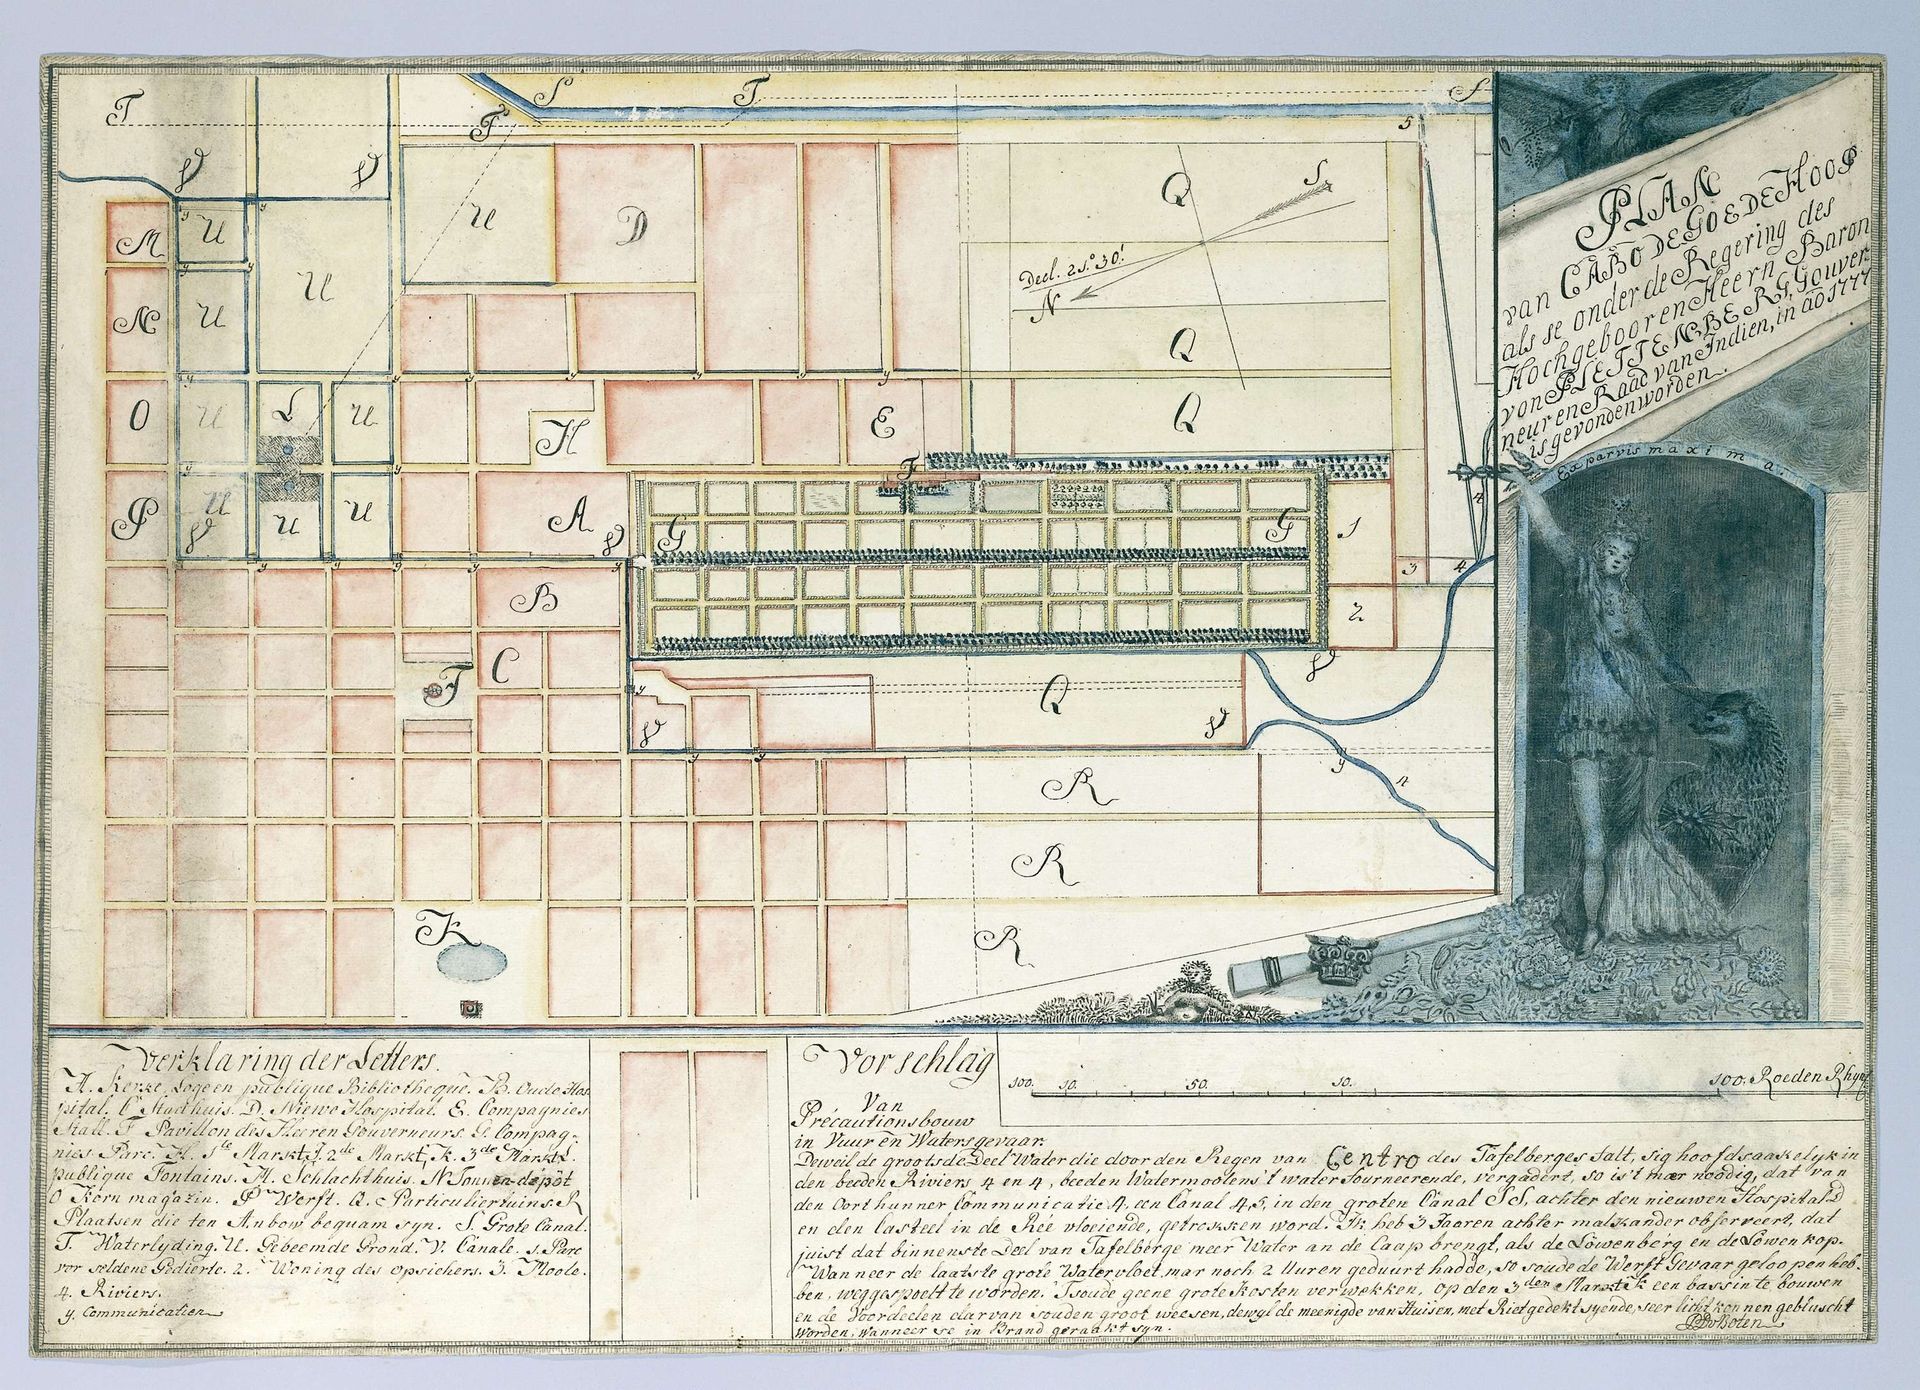 PLAN
van CABO DE GOEDE HOOP
als se onder de Regering des
Hochgebooren Heern Baron
von PLETTENBERG, Gouver-
neur en Raad van Indien, in aō 1777
is gevonden worden.
Ex parvis maxima.
T
S
T
S
T
5
V
V
M
U
U
D
Q
S
Decl. 21.° 30.'
N
N
U
U
Q
O
U
L
U
H
E
Q
F
P
U
U
U
A
V
G
G
1
4
V
3
4
B
2
I
C
V
Q
V
V
R
4
R
K
R
y
Verklaring der Letters.
A. Kerke, Loge en publique Bibliotheque. B. Oude Hos
pital. C Stadhuis. D. Niewe Hospital. E. Compagnies
Stall. F Pavillon des Heeren Gouverneurs. G. Compag-
nies Parc. H. 1ste Markt, I. 2de Markt, K. 3de Markt L.
publique Fontains. M. Schlachthuis. N Tonnen-dépôt
O Korn magazin. P Werft. Q. Particuliertuins. R
Plaatsen die ten Anbow bequam syn. S. Grote Canal.
T. Waterlyding. U. Gebeemde Grond. V. Canale. 1. Parc
vor seldene Gedierte. 2. Woning des opsichers. 3. Moole.
4. Riviers.
y. Communication
Vorschlag
Van
Précautionsbouw
in Vuur en Watersgevaar.
100. 10. 50. 10. 100. Roeden Rhyn
Deweil de grootsde Deel Water die door den Regen van Centro des Tafelberges falt, sig hoofdsaakelyk in
den beeden Riviers 4 en 4, beeden Watermoolens 't water fourneerende, vergadert, so is't maer noodig, dat van
den Oorthunner Communicatie 4, een Canal 4,5, in den groten Canal SS, achter den nieuwen Hospital D
en den Casteel in de Ree vloeiende, getrokken word. Ik heb 3 Jaaren achter malkander observeert, dat
juist dat binnenste Deel van Tafelberge meer Water an de Caap brengt, als de Löwenberg en de Löwenkop.
Wanneer de laatste grote Watervloet, mar noch 2 Uuren geduurt hadde, so soude de Werft Gevaar geloopen heb-
ben, weggespoelt te worden. 't soude geene grote Kosten verwekken, op den 3den Markt K een bassin te bouwen
en de Voordeelen darvan souden groot weesen, dewyl de meenigde van Huisen, met Riet gedekt syende, seer licht konnen gebluscht
worden, wanneer se in Brand geraakt syn.